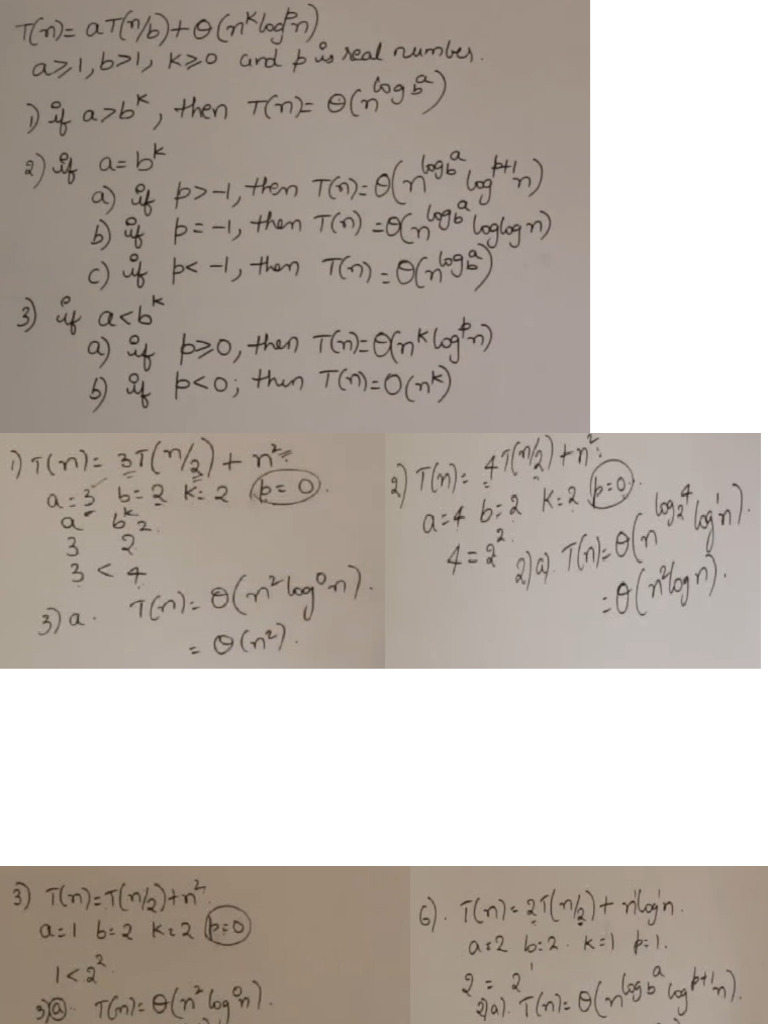 T(n) = aT(n/b) + Θ(n^k log^p n)
a ≥ 1, b > 1, k ≥ 0 and p is real number.
1) if a > b^k, then T(n) = Θ(n^log_b a)
2) if a = b^k
a) if p > -1, then T(n) = Θ(n^log_b a log^p+1 n)
b) if p = -1, then T(n) = Θ(n^log_b a loglog n)
c) if p < -1, then T(n) = Θ(n^log_b a)
3) if a < b^k
a) if p ≥ 0, then T(n) = Θ(n^k log^p n)
b) if p < 0; then T(n) = O(n^k)
1) T(n) = 3T(n/2) + n^2
a = 3 b = 2 k = 2 p = 0
a b^k 2
3 2
3 < 4
3) a. T(n) = Θ(n^2 log^0 n).
= Θ(n^2).
2) T(n) = 4T(n/2) + n^2
a = 4 b = 2 k = 2 p = 0
4 = 2^2
2) a). T(n) = Θ(n^log_2 4 log^1 n).
= Θ(n^2 log n).
3) T(n) = T(n/2) + n^2
a = 1 b = 2 k = 2 p = 0
1 < 2^2
3) a T(n) = Θ(n^2 log^0 n).
6). T(n) = 2T(n/2) + n^1 log^1 n.
a = 2 b = 2. k = 1 p = 1.
2 = 2^1
2)a). T(n) = Θ(n^log_b a log^p+1 n).